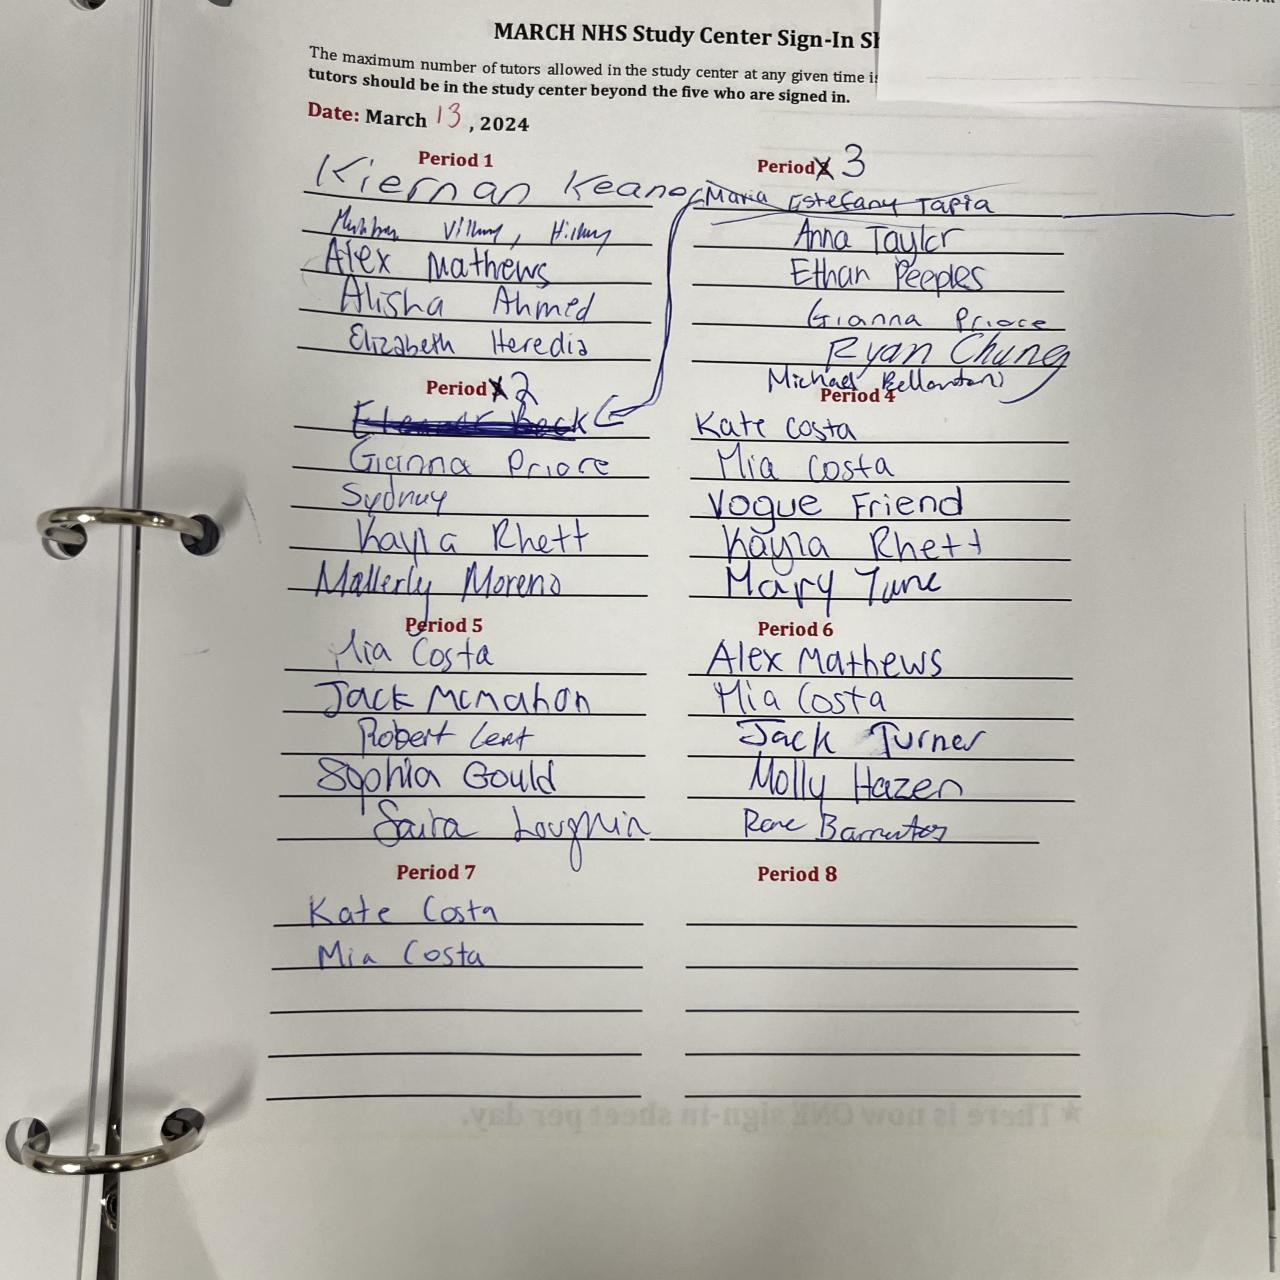 MARCH NHS Study Center Sign-In
The maximum number of tutors allowed in the study center at any given time
tutors should be in the study center beyond the five who are signed in.
Date: March 13, 2024
Period 1
Kiernan Keane
Alex Mathews
Alisha Ahmed
Elizabeth Heredia
Period 3
Maria Estefany Tapia
Anna Taylor
Ethan Peeples
Gianna Priore
Ryan Chung
Michael Bellantoni
Period 2
Gianna Priore
Sydney
Kayla Rhett
Mallerly Moreno
Period 4
Kate Costa
Mia Costa
Vogue Friend
Kayla Rhett
Mary Tune
Period 5
Mia Costa
Jack McMahon
Robert Lent
Sophia Gould
Saira Loughlin
Period 6
Alex Mathews
Mia Costa
Jack Turner
Molly Hazen
Rene
Period 7
Kate Costa
Mia Costa
Period 8
There is now ONE sign-in sheet per day.